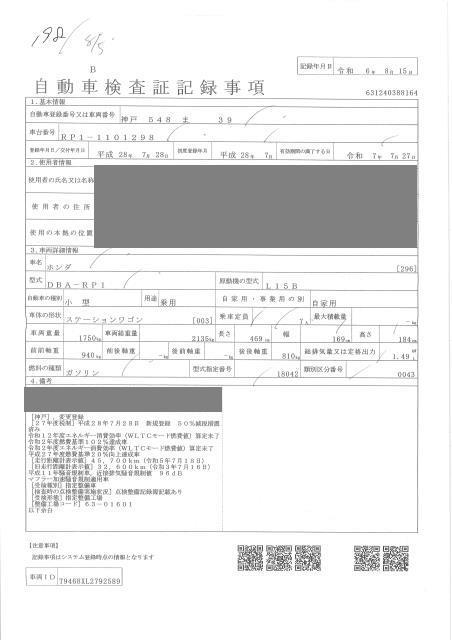 198/8/5
記録年月日 令和 6年 8月 15日
B
自動車検査証記録事項
631240388164
1.基本情報
自動車登録番号又は車両番号 神戸 548 ま 39
車台番号 RP1-1101298
登録年月日/交付年月日 平成 28年 7月 28日 初度登録年月 平成 28年 7月 有効期間の満了する日 令和 7年 7月 27日
2.使用者情報
使用者の氏名又は名称
使用者の住所
使用の本拠の位置
3.車両詳細情報
車名 ホンダ [296]
型式 DBA-RP1 原動機の型式 L15B
自動車の種別 小型 用途 乗用 自家用・事業用の別 自家用
車体の形状 ステーションワゴン [003] 乗車定員 7人 最大積載量 -kg
車両重量 1750kg 車両総重量 2135kg 長さ 469cm 幅 169cm 高さ 184cm
前前軸重 940kg 前後軸重 -kg 後前軸重 -kg 後後軸重 810kg 総排気量又は定格出力 1.49L
燃料の種類 ガソリン 型式指定番号 18042 類別区分番号 0043
4.備考
[神戸],変更登録
[27年度税制]平成28年7月28日 新規登録 50%減税措置
済み
令和12年度エネルギー消費効率(WLTCモード燃費値)算定未了
令和2年度燃費基準102%達成車
令和2年度エネルギー消費効率(WLTCモード燃費値)算定未了
平成27年度燃費基準20%向上達成車
[走行距離計表示値]45,700km(令和5年7月18日)
[旧走行距離計表示値]32,600km(令和3年7月16日)
平成11年騒音規制車,近接排気騒音規制値 96dB
マフラー加速騒音規制適用車
[受検種別]指定整備車
[検査時の点検整備実施状況]点検整備記録簿記載あり
[受検形態]指定整備工場
[整備工場コード]63-01601
以下余白
[注意事項]
記録事項はシステム登録時点の情報となります
車両ID T9468XL2792589